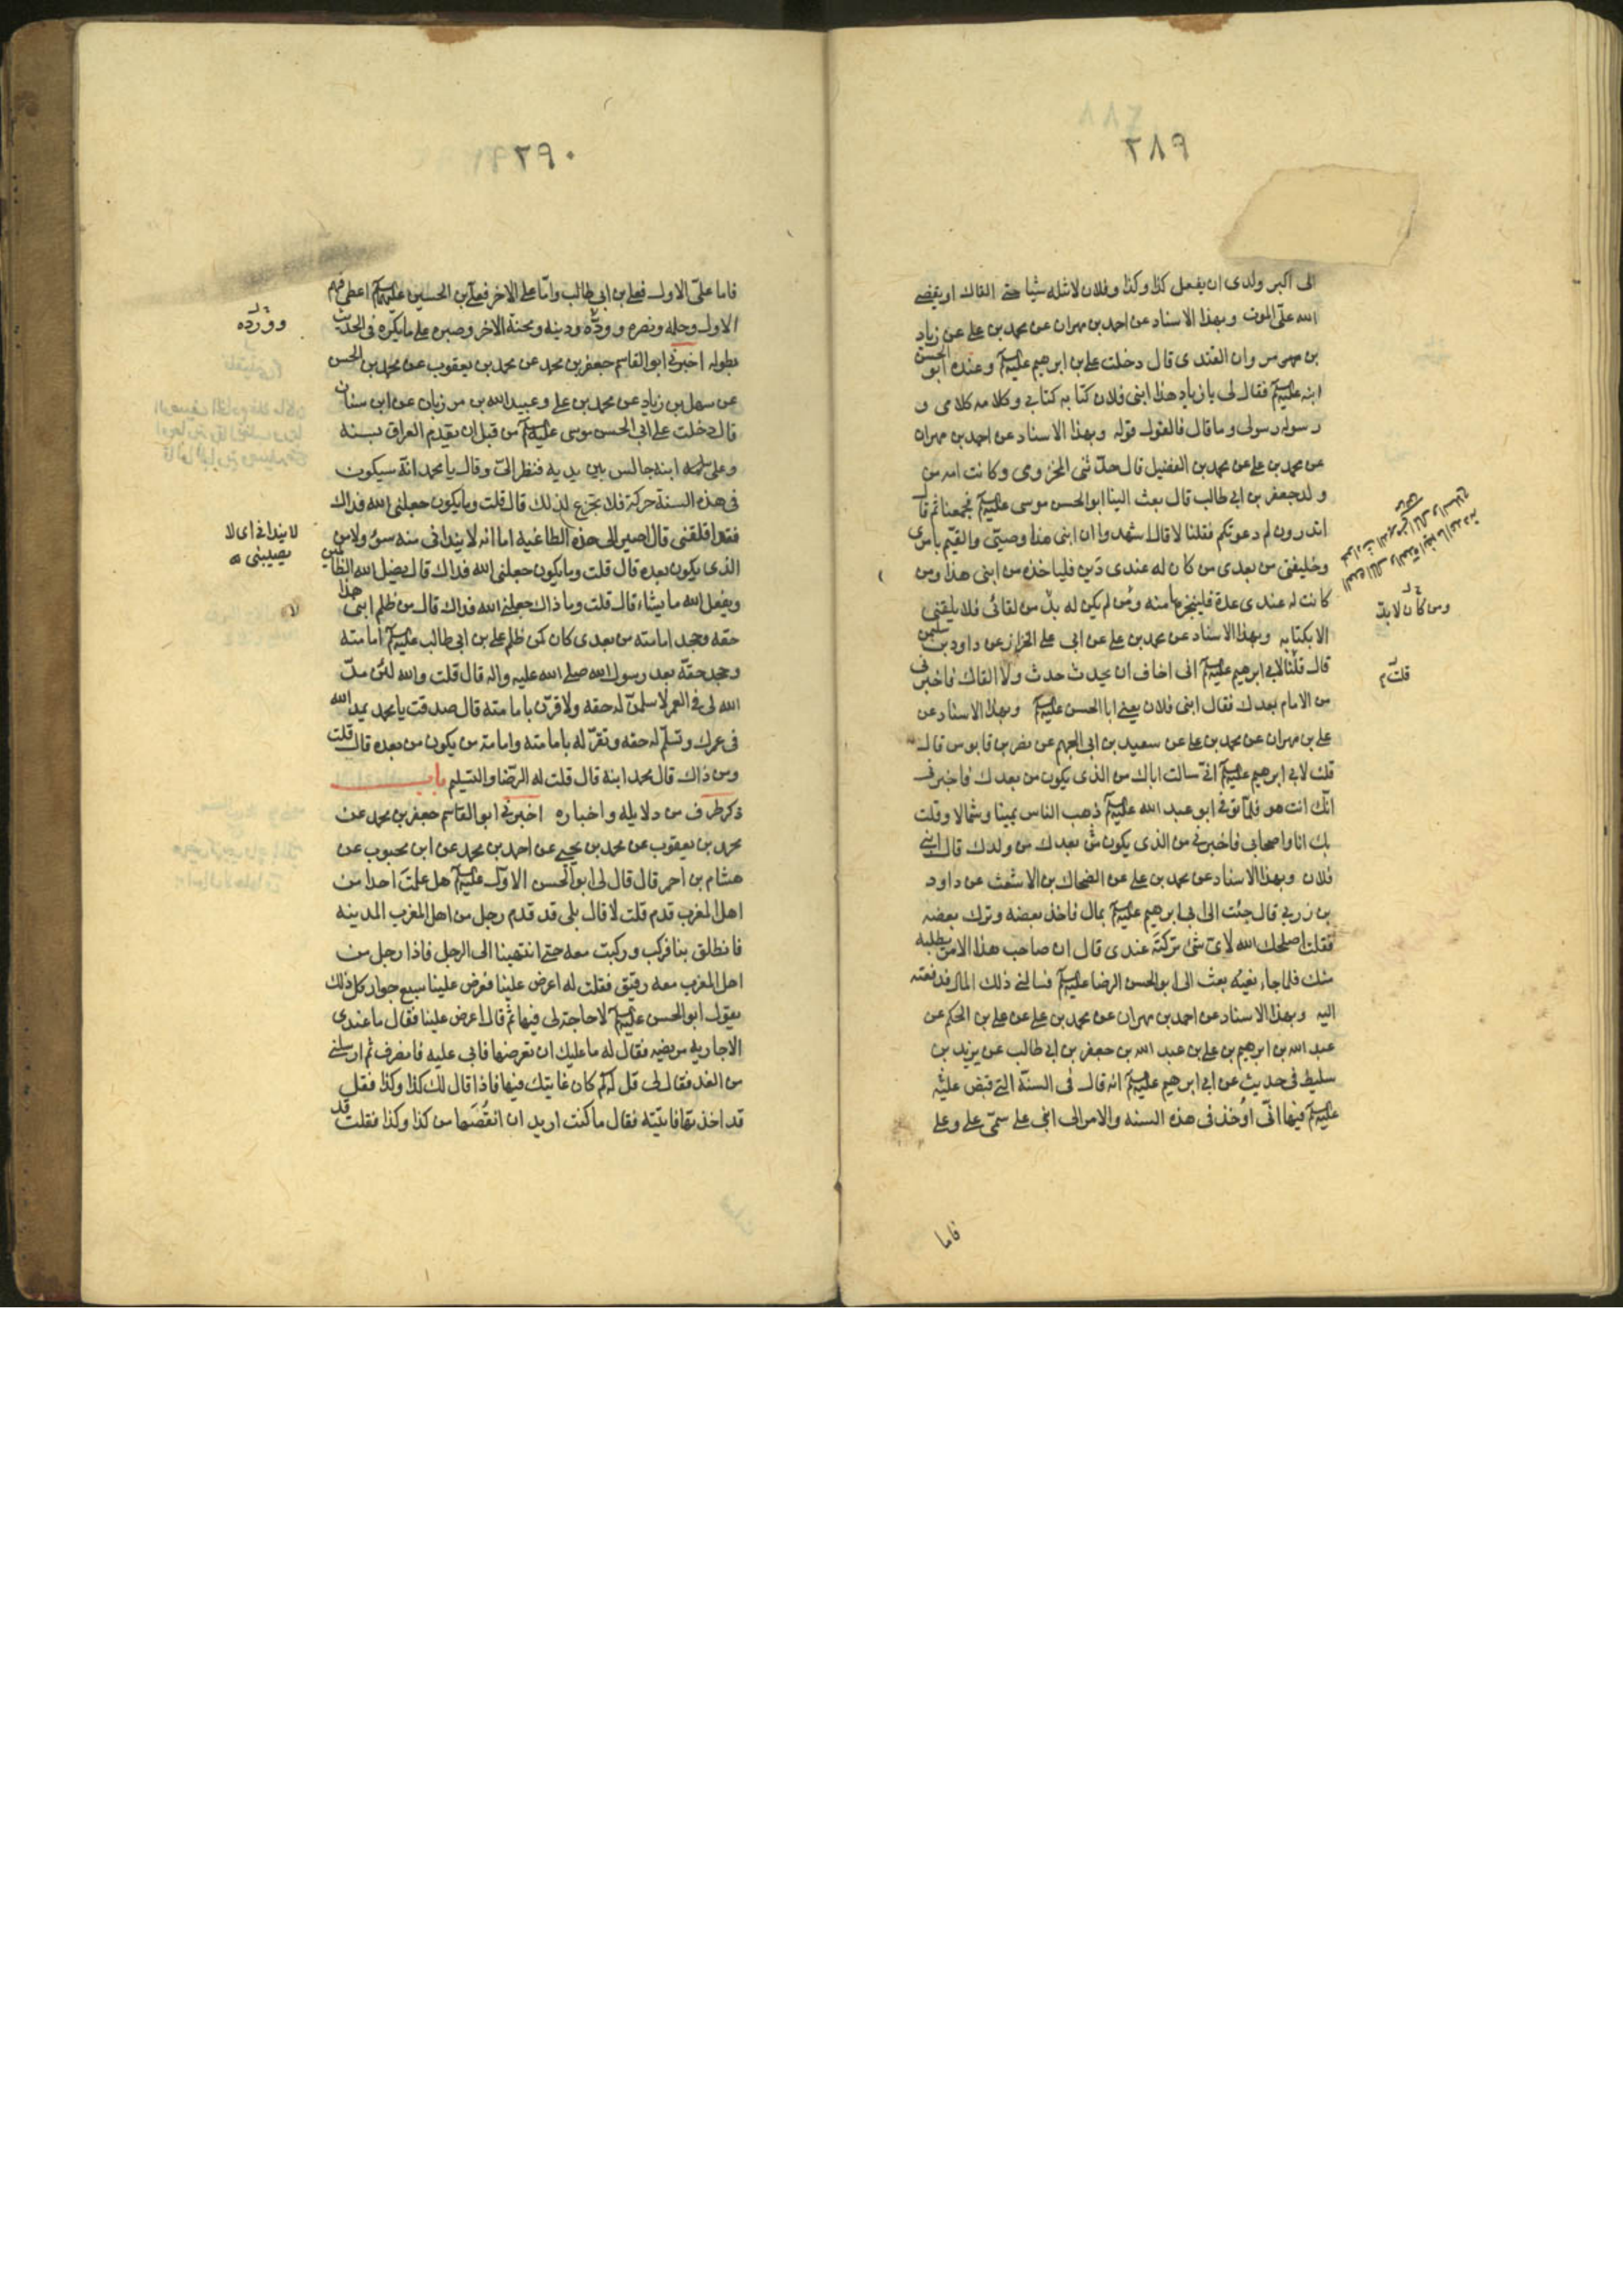 ٢٨٩
الى اكبر ولدى ان يفعل كذا وكذا وفلان لا تنله شيا حتى القاك او يقضى
الله على الموت وبهذا الاسناد عن احمد بن مهران عن محمد بن على عن زياد
بن مروان القندى قال دخلت على ابى ابرهيم عليه السلم وعنده ابو الحسن
ابنه عليه السلم فقال لى يا زياد هذا ابنى فلان كتابه كتابى وكلامه كلامى و
رسوله رسولى وما قال فالقول قوله وبهذا الاسناد عن احمد بن مهران
عن محمد بن على عن محمد بن الفضيل قال حدثنى المخزومى وكانت امه من
ولد جعفر بن ابى طالب قال بعث الينا ابو الحسن موسى عليه السلم فجمعنا ثم قال
اتدرون لم دعوتكم فقلنا لا قال اشهدوا ان ابنى هذا وصيتى والقيم بامرى
وخليفتى من بعدى من كان له عندى دين فلياخذه من ابنى هذا ومن
كانت له عندى عدة فلينجزها منه ومن لم يكن له بد من لقائى فلا يلقنى
ومن كان لابد
الا بكتابه وبهذا الاسناد عن محمد بن على عن ابى على الخزاز عن داود بن سليمن
قال قلنا لابى ابرهيم عليه السلم انى اخاف ان يحدث حدث ولا القاك فاخبرنى
قلت
من الامام بعدك فقال ابنى فلان يعنى ابا الحسن عليه السلم وبهذا الاسناد عن
على بن مهران عن محمد بن على عن سعيد بن ابى الجهم عن نضر بن قابوس قال
قلت لابى ابرهيم عليه السلم انى سالت اباك من الذى يكون من بعدك فاخبرنى
انك انت هو فلما توفى ابو عبد الله عليه السلم ذهب الناس يمينا وشمالا وقلت
بك انا واصحابى فاخبرنى من الذى يكون من بعدك من ولدك قال ابنى
فلان وبهذا الاسناد عن محمد بن على عن الضحاك بن الاشعث عن داود
بن زربى قال جئت الى ابى ابرهيم عليه السلم بمال فاخذ بعضه وترك بعضه
فقلت اصلحك الله لاى شئ تركته عندى قال ان صاحب هذا الامر يطلبه
منك فلما جاء نعيه بعث الى ابو الحسن الرضا عليه السلم فسالنى ذلك المال فدفعته
اليه وبهذا الاسناد عن احمد بن مهران عن محمد بن على عن على بن الحكم عن
عبد الله بن ابرهيم بن على بن عبد الله بن جعفر بن ابى طالب عن يزيد بن
سليط فى حديث عن ابى ابرهيم عليه السلم انه قال فى السنة التى قبض عليه
عليه السلم فيها انى اوخذ فى هذه السنه والامر الى ابنى على سمى على وعلى
فاما
٢٩٠
فاما على الاول فعلى بن ابى طالب واما على الاخر فعلى بن الحسين عليهم السلم اعطى فهم
الاول وحلمه ونصره ووده ودينه ومحنة الاخر وصبره على ما يكره فى الحديث
وورده
بطوله اخبرنى ابو القاسم جعفر بن محمد عن محمد بن يعقوب عن محمد بن الحسن
عن سهل بن زياد عن محمد بن على وعبيد الله بن مرزبان عن ابن سنان
قال دخلت على ابى الحسن موسى عليه السلم من قبل ان يقدم العراق بسنه
وعلى ابنه جالس بين يديه فنظر الى وقال يا محمد انه سيكون
فى هذه السنة حركة فلا تجزع لذلك قال قلت وما يكون جعلنى الله فداك
فقد اقلقنى قال اصير الى هذه الطاغيه اما انه لا يبدانى منه سوء ولا من
لا يبدانى اى لا
يصيبنى
الذى يكون بعده قال قلت وما يكون جعلنى الله فداك قال يضل الله الظالمين
ويفعل الله ما يشاء قال قلت وما ذاك جعلنى الله فداك قال من ظلم ابنى هذا
حقه وجحد امامته من بعدى كان كمن ظلم على بن ابى طالب عليه السلم امامته
وجحد حقه بعد رسول الله صلى الله عليه واله قال قلت والله لئن مد
الله لى فى العمر لاسلمن له حقه ولاقرن بامامته قال صدقت يا محمد يمد الله
فى عمرك وتسلم له حقه وتقر له بامامته وامامة من يكون من بعده قال قلت
ومن ذاك قال محمد ابنه قال قلت له الرضا والتسليم باب
ذكر طرف من دلايله واخباره اخبرنى ابو القاسم جعفر بن محمد عن
محمد بن يعقوب عن محمد بن يحيى عن احمد بن محمد عن ابن محبوب عن
هشام بن احمر قال قال لى ابو الحسن الاول عليه السلم هل علمت احدا من
اهل المغرب قدم قلت لا قال بلى قد قدم رجل من اهل المغرب المدينه
فانطلق بنا فركب وركبت معه حتى انتهينا الى الرجل فاذا رجل من
اهل المغرب معه رقيق فقلت له اعرض علينا فعرض علينا سبع جوار كل ذلك
يقول ابو الحسن عليه السلم لا حاجة لى فيها ثم قال اعرض علينا فقال ما عندى
الا جارية مريضه فقال له ما عليك ان تعرضها فابى عليه فانصرف ثم ارسلنى
من الغد فقال لى قل له كم كان غايتك فيها فاذا قال لك كذا وكذا فقل
قد اخذتها فاتيته فقال ما كنت اريد ان انقصها من كذا وكذا فقلت قد